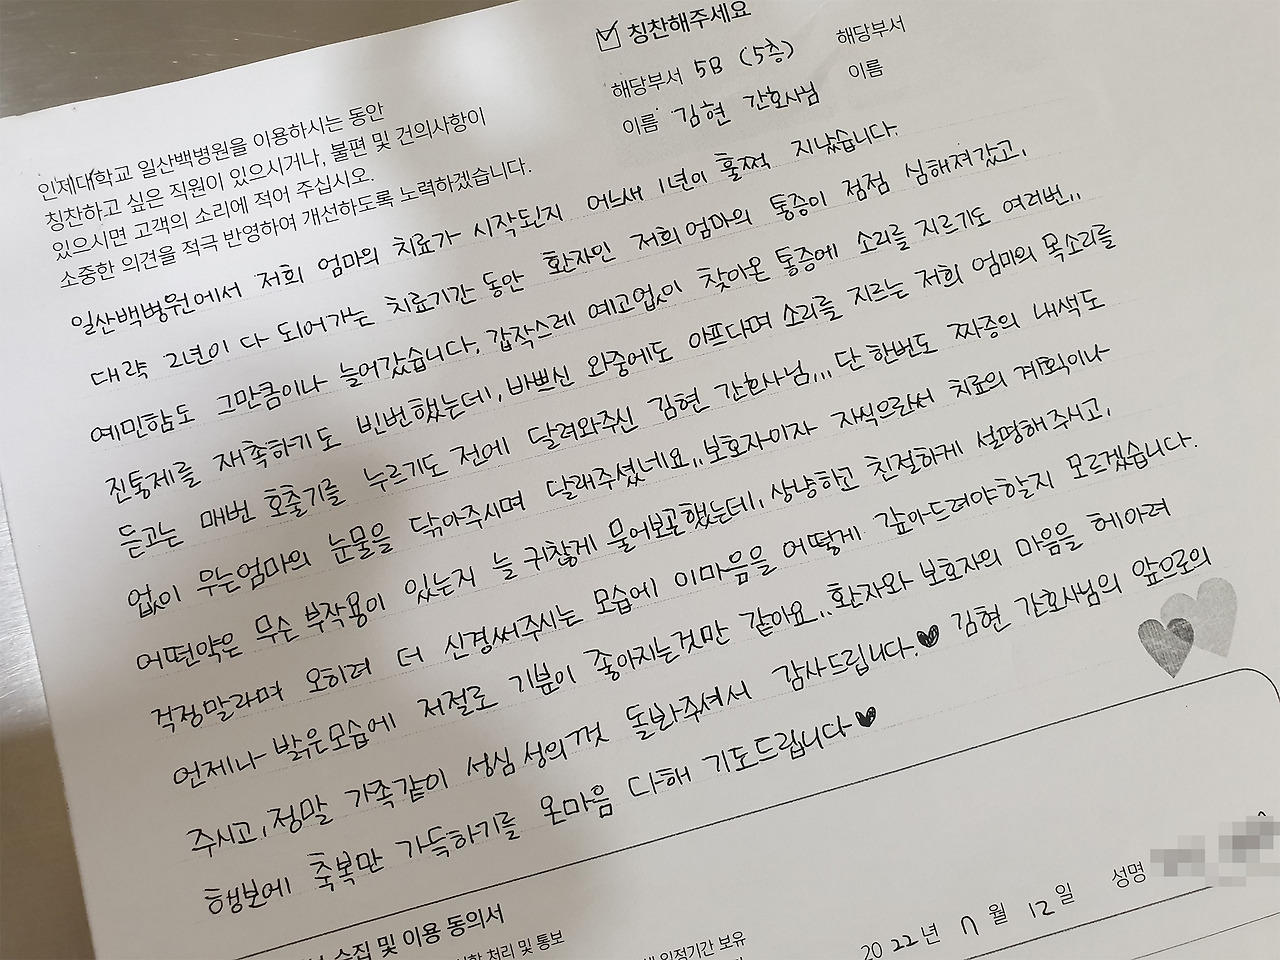 ☑ 칭찬해주세요
해당부서 5B (5층) 해당부서
이름 김현 간호사님 이름
인제대학교 일산백병원을 이용하시는 동안
칭찬하고 싶은 직원이 있으시거나, 불편 및 건의사항이
있으시면 고객의 소리에 적어 주십시오.
소중한 의견을 적극 반영하여 개선하도록 노력하겠습니다.
일산백병원에서 저희 엄마의 치료가 시작된지 어느새 1년이 훌쩍 지났습니다.
대략 2년이 다 되어가는 치료기간 동안 환자인 저희 엄마의 통증이 점점 심해져갔고,
예민함도 그만큼이나 늘어갔습니다. 갑작스레 예고없이 찾아온 통증에 소리를 지르기도 여러번..
진통제를 재촉하기도 빈번했는데, 바쁘신 와중에도 아프다며 소리를 지르는 저희 엄마의 목소리를
듣고는 매번 호출기를 누르기도 전에 달려와주신 김현 간호사님... 단 한번도 짜증의 내색도
없이 우는엄마의 눈물을 닦아주시며 달래주셨네요.. 보호자이자 자식으로써 치료의 계획이나
어떤약은 무슨 부작용이 있는지 늘 귀찮게 물어보곤했는데, 상냥하고 친절하게 설명해주시고,
걱정말라며 오히려 더 신경써주시는 모습에 이마음을 어떻게 갚아드려야할지 모르겠습니다.
언제나 밝은모습에 저절로 기분이 좋아지는것만 같아요.. 환자와 보호자의 마음을 헤아려
주시고, 정말 가족같이 성심 성의껏 돌봐주셔서 감사드립니다.♥ 김현 간호사님의 앞으로의
행보에 축복만 가득하기를 온마음 다해 기도드립니다♥
수집 및 이용 동의서
처리 및 통보 일정기간 보유
2022년 7월 12일 성명